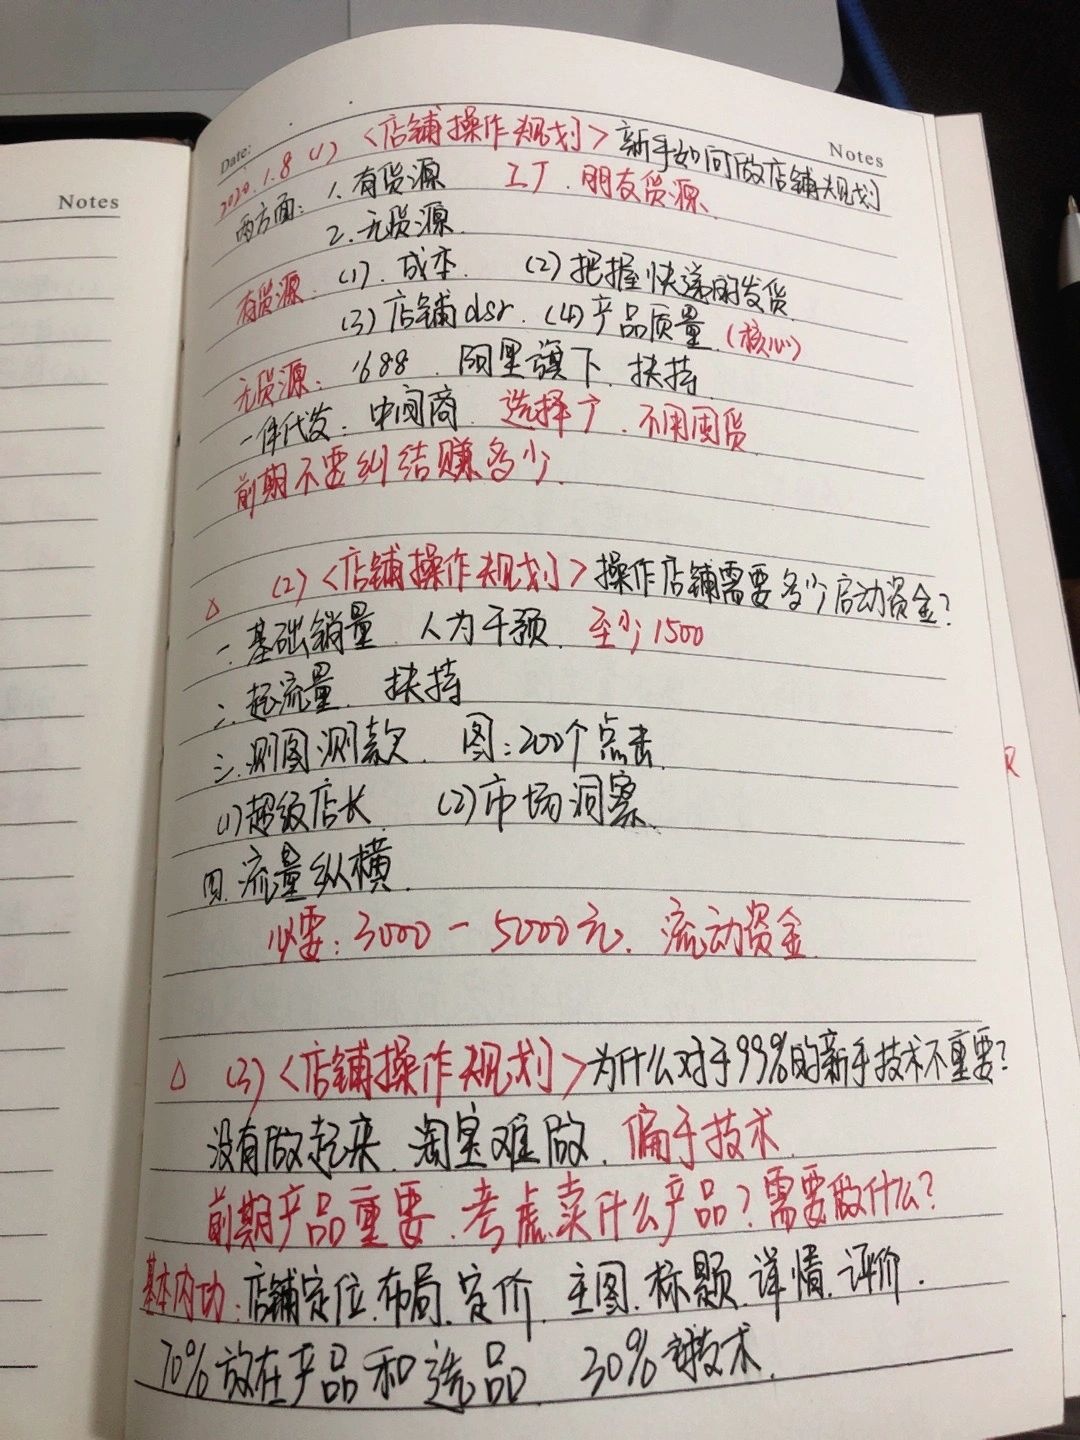 Notes
Date:
Notes
2020.1.8 (1) <店铺操作规划> 新手如何做店铺规划
两方面: 1.有货源 工厂.朋友货源.
2.无货源.
有货源: (1).成本. (2)把握快递的发货.
(3)店铺dsr. (4)产品质量.(核心)
无货源: 1688. 阿里旗下.扶持
一件代发: 中间商. 选择广.不用囤货
前期不要纠结赚多少.
△ (2)<店铺操作规划>操作店铺需要多少启动资金?
一.基础销量.人为干预. 至少1500
二.起流量. 扶持
三.测图测款. 图:200个点击.
(1)超级店长. (2)市场洞察.
四.流量纵横.
必要: 3000-5000元. 流动资金.
R
△ (3)<店铺操作规划>为什么对于99%的新手技术不重要?
没有做起来.淘宝难做. 偏于技术.
前期产品重要.考虑卖什么产品?需要做什么?
基本内功.店铺定位.布局.定价.主图.标题.详情.评价.
70%放在产品和选品. 30%技术.